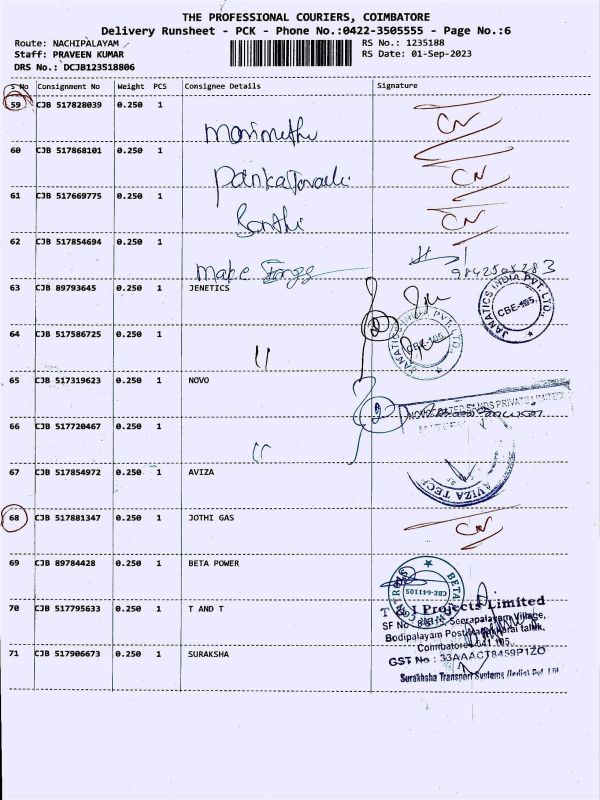 THE PROFESSIONAL COURIERS, COIMBATORE
Delivery Runsheet - PCK - Phone No.:0422-3505555 - Page No.:6
Route: NACHIPALAYAM
RS No.: 1235188
Staff: PRAVEEN KUMAR
RS Date: 01-Sep-2023
DRS No.: DCJB123518806
S No Consignment No Weight PCS Consignee Details Signature
59 CJB 517828039 0.250 1
CN
60 CJB 517868101 0.250 1
CN
61 CJB 517669775 0.250 1
CN
62 CJB 517854694 0.250 1
make
63 CJB 89793645 0.250 1 JENETICS
JANATICS INDIA PVT. LTD.
CBE-105
64 CJB 517586725 0.250 1
"
65 CJB 517319623 0.250 1 NOVO
66 CJB 517720467 0.250 1
"
67 CJB 517854972 0.250 1 AVIZA
AVIZA TECH
68 CJB 517881347 0.250 1 JOTHI GAS
CN
69 CJB 89784428 0.250 1 BETA POWER
BETA CONTROLS
CBE-641105
70 CJB 517795633 0.250 1 T AND T
T I Projects Limited
Seerapalayam Village,
Bodipalayam Post, taluk,
Coimbatore 641 105.
GST No : 33AAACT8459P1ZO
71 CJB 517906673 0.250 1 SURAKSHA
Surakhsha Transport Systems (India) Pvt. Ltd